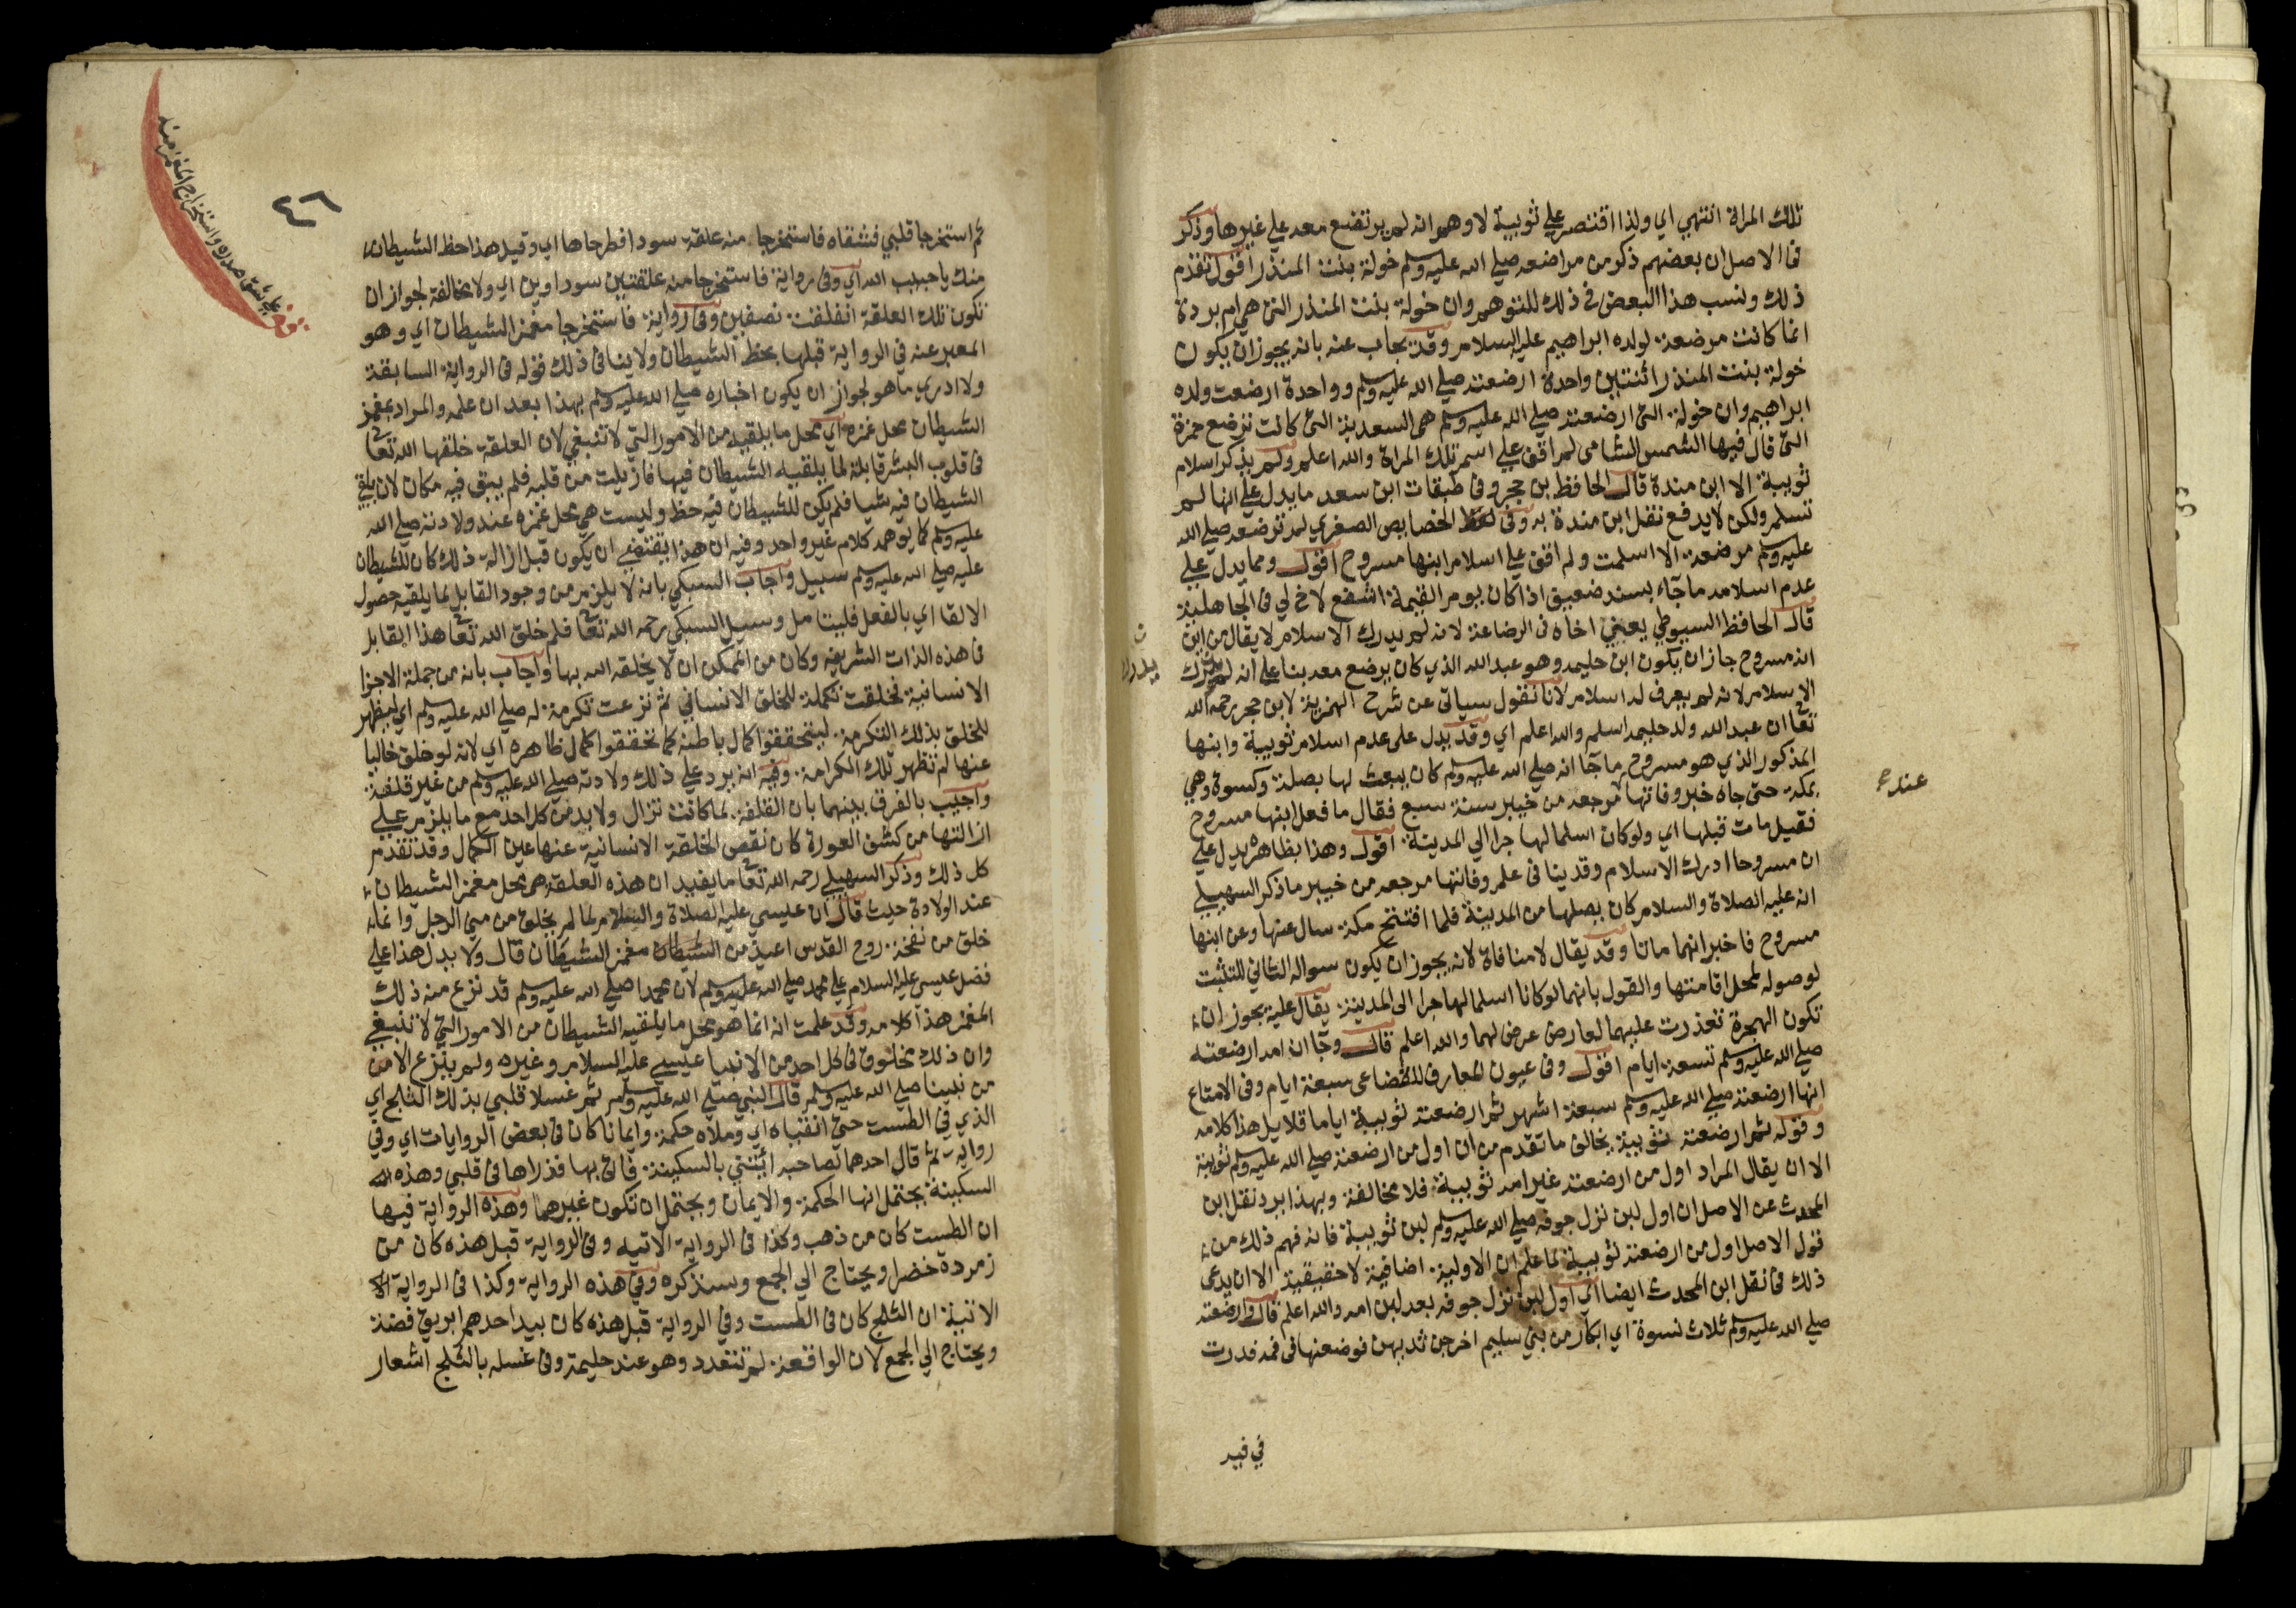 تلك المراة انتهي اي ولذا اقتصر علي ثويبة لا وهو انه لم يرتضع معه علي غيرها وذكر
في الاصل ان بعضهم ذكر من مراضعه صلي الله عليه وسلم خولة بنت المنذر اقول تقدم
ذلك ونسب هذا البعض في ذلك للتوهم وان خولة بنت المنذر التي هي ام بردة
انما كانت مرضعة لولده ابراهيم عليه السلام وقد يجاب عنه بانه يجوز ان يكون
خولة بنت المنذر اثنتين واحدة ارضعته صلي الله عليه وسلم وواحدة ارضعت ولده
ابراهيم وان خولة التي ارضعته صلي الله عليه وسلم هي السعدية التي كانت ترضع حمزة
التي قال فيها الشمس الشامي لم اقف علي اسم تلك المراة والله اعلم ولم يذكر اسلام
ثويبة الا ابن مندة قال الحافظ بن حجر وفي طبقات ابن سعد ما يدل علي انها لم
تسلم ولكن لا يدفع نقل ابن مندة به وفي الخصايص الصغري لم ترضعه صلي الله
عليه وسلم مرضعة الا اسلمت ولم اقف علي اسلام ابنها مسروح اقول ومما يدل علي
عدم اسلامه ما جاء بسند ضعيف اذا كان يوم القيمة اشفع لاخ لي في الجاهلية
قال الحافظ السيوطي يعني اخاه في الرضاعة لانه لم يدرك الاسلام لا يقال من اين
انه مسروح جاز ان يكون ابن حليمه وهو عبد الله الذي كان يرضع معه بنا علي انه لم يدرك
الاسلام لانه لم يعرف له اسلام لانا نقول سياتي عن شرح الهمزية لابن حجر رحمه الله
تعا ان عبد الله ولد حليمه اسلم والله اعلم اي وقد يدل علي عدم اسلام ثويبة وابنها
المذكور الذي هو مسروح ما جا انه صلي الله عليه وسلم كان يبعث لها بصلة وكسوة وهي
بمكة حتي جاه خبر وفاتها مرجعه من خيبر سنة سبع فقال ما فعل ابنها مسروح
فقيل مات قبلها اي ولو كان اسلما لهاجرا الي المدينة اقول وهذا بظاهره يدل علي
ان مسروحا ادرك الاسلام وقد ينا في علم وفاتها مرجعه من خيبر ما ذكر السهيلي
انه عليه الصلاة والسلام كان يصلها من المدينة فلما افتتح مكة سال عنها وعن ابنها
مسروح فاخبر انهما ماتا وقد يقال لا منافاة لانه يجوز ان يكون سواله الثاني للتثبت
لوصوله لمحل اقامتها والقول بانهما لو كانا اسلما لهاجرا الي المدينة يقال عليه يجوز ان
تكون الهجرة تعذرت عليهما لعارض عرض لهما والله اعلم قال وجا ان امه ارضعته
صلي الله عليه وسلم تسعة ايام اقول وفي عيون المعارف للقضاعي سبعة ايام وفي الامتاع
انها ارضعته صلي الله عليه وسلم سبعة اشهر ثم ارضعته ثويبة اياما قلايل هذا كلامه
وقوله ثم ارضعته ثويبة يخالف ما تقدم من ان اول من ارضعته صلي الله عليه وسلم ثويبة
الا ان يقال المراد اول من ارضعته غير امه ثويبة فلا مخالفة وبهذا يرد نقل ابن
المحدث عن الاصل ان اول لبن نزل جوفه صلي الله عليه وسلم لبن ثويبة فانه فهم ذلك من
قول الاصل اول من ارضعته ثويبة لما علم ان الاولية اضافية لا حقيقية الا ان يدعي
ذلك في نقل ابن المحدث ايضا اي اول لبن نزل جوفه بعد لبن امه والله اعلم قال وارضعته
صلي الله عليه وسلم ثلاث نسوة اي ابكار من بني سليم اخرجن ثديهن فوضعنها في فمه فدرت
في فيه
يدرك
عند
٤٦
علي شق صدره واستخراج المغمز منه
ثم استخرجا قلبي فشقاه فاستخرجا منه علقة سودا فطرحاها اي وقيل هذا حظ الشيطان
منك يا حبيب الله اي وفي رواية فاستخرجا منه علقتين سوداوين اي ولا مخالفة لجواز ان
تكون تلك العلقة انفلقت نصفين وفي رواية فاستخرجا مغمز الشيطان اي وهو
المعبر عنه في الرواية قبلها بحظ الشيطان ولا ينافي ذلك قوله في الرواية السابقة
ولا ادري ما هو لجواز ان يكون اخباره صلي الله عليه وسلم بهذا بعد ان علمه والمراد بمغمز
الشيطان محل غمزه اي محل ما يلقيه من الامور التي لا تنبغي لان العلقة خلقها الله تعا
في قلوب البشر قابلة لما يلقيه الشيطان فيها فازيلت من قلبه فلم يبق فيه مكان لان يلقي
الشيطان فيه شيا فلم يكن للشيطان فيه حظ وليست هي محل غمزه عند ولادته صلي الله
عليه وسلم كما يوهمه كلام غير واحد وفيه ان هذا يقتضي ان يكون قبل ازالة ذلك كان للشيطان
عليه صلي الله عليه وسلم سبيل واجاب السبكي بانه لا يلزم من وجود القابل لما يلقيه حصول
الالقا اي بالفعل فليتامل وسيل السبكي رحمه الله تعا فلم خلق الله تعا هذا القابل
في هذه الذات الشريفة وكان من الممكن ان لا يخلقه الله بها واجاب بانه من جملة الاجزا
الانسانية فخلقت تكملة للخلق الانساني ثم نزعت تكرمة له صلي الله عليه وسلم اي ليظهر
للخلق بذلك التكرمة ليتحققوا كمال باطنه كما تحققوا كمال ظاهره اي لانه لو خلق خاليا
عنها لم تظهر تلك الكرامة وفيه انه يرد علي ذلك ولادته صلي الله عليه وسلم من غير قلفة
واجيب بالفرق بينهما بان القلفة لما كانت تزال ولا بد من كل احد مع ما يلزم علي
ازالتها من كشف العورة كان نقص الخلقة الانسانية عنها عين الكمال وقد تقدم
كل ذلك وذكر السهيلي رحمه الله تعا ما يفيد ان هذه العلقة هي محل مغمز الشيطان
عند الولادة حيث قال ان عيسي عليه الصلاة والسلام لما لم يخلق من مني الرجل وانما
خلق من نفخة روح القدس اعيذ من مغمز الشيطان قال ولا يدل هذا علي
فضل عيسي عليه السلام علي محمد صلي الله عليه وسلم لان محمدا صلي الله عليه وسلم قد نزع منه ذلك
المغمز هذا كلامه وقد علمت انه انما هو محل ما يلقيه الشيطان من الامور التي لا تنبغي
وان ذلك مخلوق في كل احد من الانبيا عيسي عليه السلام وغيره ولم ينزع الا من
من نبينا صلي الله عليه وسلم قال النبي صلي الله عليه وسلم ثم غسلا قلبي بذلك الثلج اي
الذي في الطست حتي انقياه اي وملاه حكمة وايمانا كان في بعض الروايات اي وفي
رواية ثم قال احدهما لصاحبه ائتني بالسكينة فاتي بها فذراها في قلبي وهذه
السكينة يحتمل انها الحكمة والايمان ويحتمل ان تكون غيرهما وهذه الرواية فيها
ان الطست كان من ذهب وكذا في الرواية الاتيه وفي الرواية قبل هذه كان من
زمردة خضرا ويحتاج الي الجمع وسنذكره وفي هذه الرواية وكذا في الرواية
الاتية ان الثلج كان في الطست وفي الرواية قبل هذه كان بيد احدهم ابريق فضة
ويحتاج الي الجمع لان الواقعة لم تتعدد وهو عند حليمة وفي غسله بالثلج اشعار